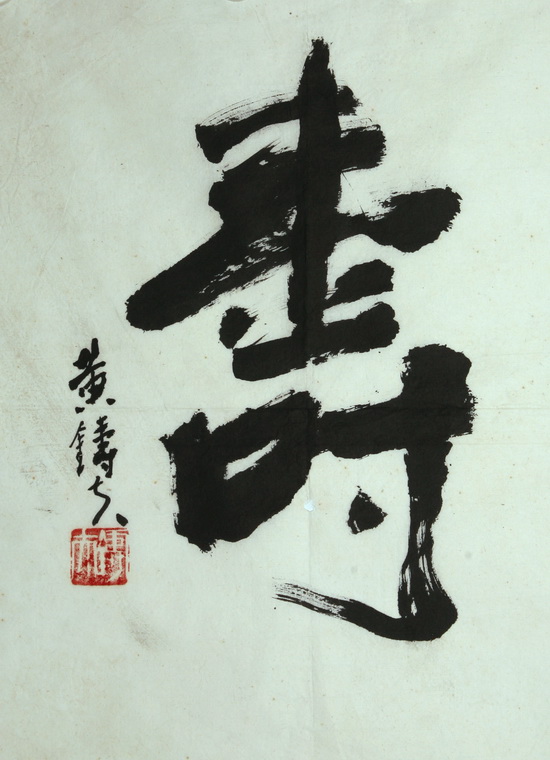 壽
黄鑄夫